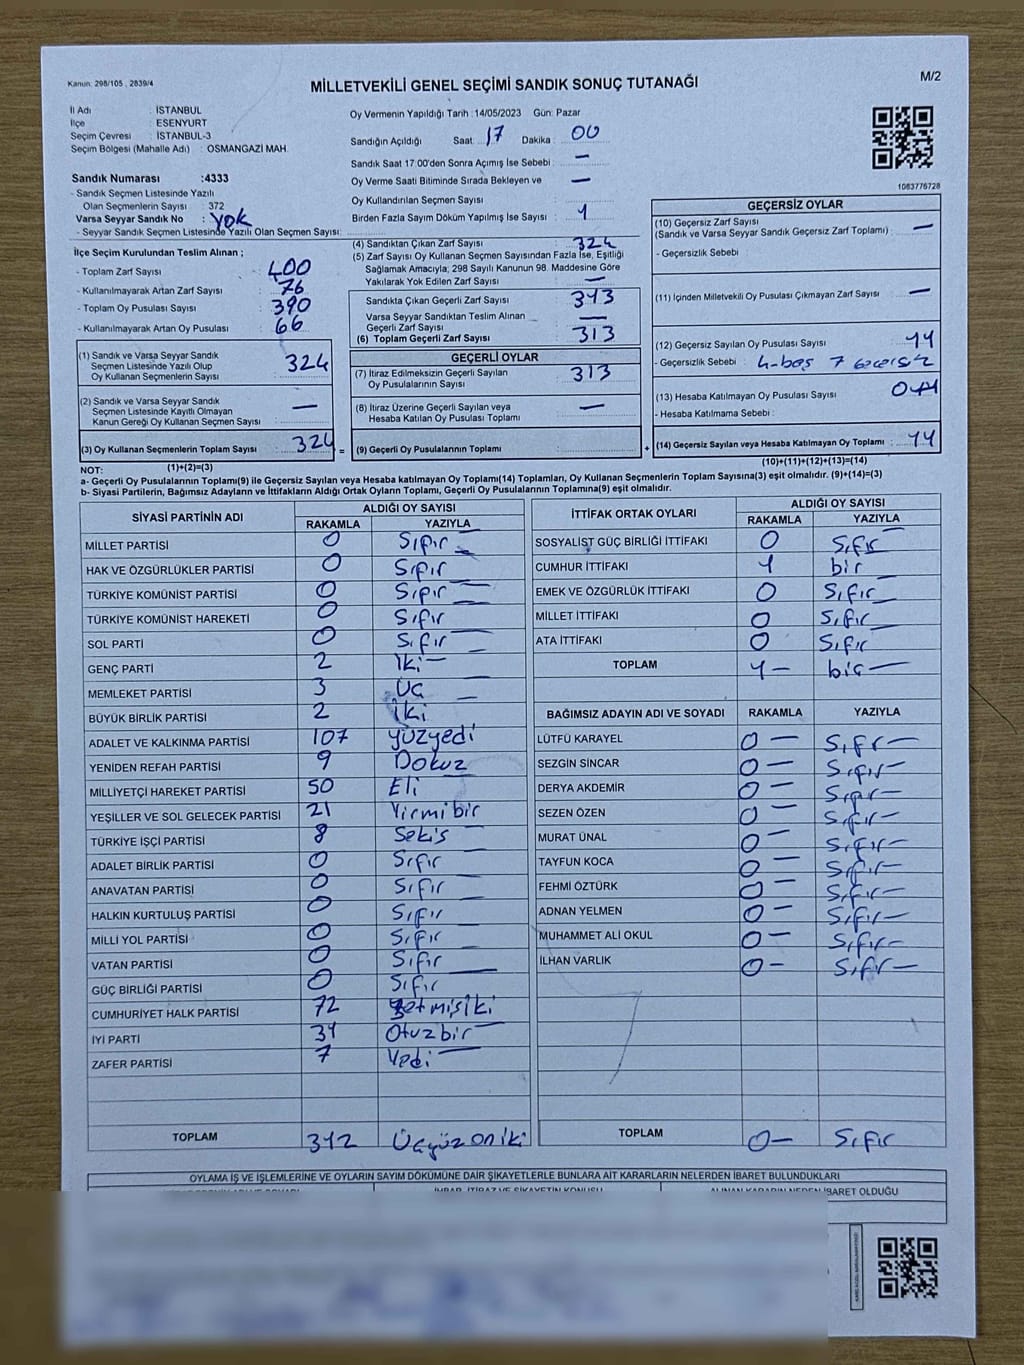 Kanun: 298/105 , 2839/4
MİLLETVEKİLİ GENEL SEÇİMİ SANDIK SONUÇ TUTANAĞI
M/2
İl Adı : İSTANBUL
İlçe : ESENYURT
Seçim Çevresi : İSTANBUL-3
Seçim Bölgesi (Mahalle Adı) : OSMANGAZİ MAH.
Oy Vermenin Yapıldığı Tarih : 14/05/2023 Gün: Pazar
Sandığın Açıldığı Saat 17 Dakika 00
Sandık Saat 17:00'den Sonra Açımış İse Sebebi : —
Oy Verme Saati Bitiminde Sırada Bekleyen ve —
Oy Kullandırılan Seçmen Sayısı
Birden Fazla Sayım Döküm Yapılmış İse Sayısı : 1
1083776728
Sandık Numarası :4333
- Sandık Seçmen Listesinde Yazılı
Olan Seçmenlerin Sayısı : 372
Varsa Seyyar Sandık No : Yok
- Seyyar Sandık Seçmen Listesinde Yazılı Olan Seçmen Sayısı:
İlçe Seçim Kurulundan Teslim Alınan ;
- Toplam Zarf Sayısı : 400
- Kullanılmayarak Artan Zarf Sayısı : 76
- Toplam Oy Pusulası Sayısı : 390
- Kullanılmayarak Artan Oy Pusulası : 66
(1) Sandık ve Varsa Seyyar Sandık
Seçmen Listesinde Yazılı Olup
Oy Kullanan Seçmenlerin Sayısı 324
(2) Sandık ve Varsa Seyyar Sandık
Seçmen Listesinde Kayıtlı Olmayan
Kanun Gereği Oy Kullanan Seçmen Sayısı —
(3) Oy Kullanan Seçmenlerin Toplam Sayısı 324 =
(4) Sandıktan Çıkan Zarf Sayısı : 324
(5) Zarf Sayısı Oy Kullanan Seçmen Sayısından Fazla İse, Eşitliği
Sağlamak Amacıyla; 298 Sayılı Kanunun 98. Maddesine Göre
Yakılarak Yok Edilen Zarf Sayısı : —
Sandıkta Çıkan Geçerli Zarf Sayısı : 313
Varsa Seyyar Sandıktan Teslim Alınan
Geçerli Zarf Sayısı : —
(6) Toplam Geçerli Zarf Sayısı : 313
GEÇERLİ OYLAR
(7) İtiraz Edilmeksizin Geçerli Sayılan
Oy Pusulalarının Sayısı : 313
(8) İtiraz Üzerine Geçerli Sayılan veya
Hesaba Katılan Oy Pusulası Toplamı : —
(9) Geçerli Oy Pusulalarının Toplamı +
GEÇERSİZ OYLAR
(10) Geçersiz Zarf Sayısı
(Sandık ve Varsa Seyyar Sandık Geçersiz Zarf Toplamı) : —
- Geçersizlik Sebebi :
(11) İçinden Milletvekili Oy Pusulası Çıkmayan Zarf Sayısı : —
(12) Geçersiz Sayılan Oy Pusulası Sayısı : 11
- Geçersizlik Sebebi : 4-boş 7 geçersiz
(13) Hesaba Katılmayan Oy Pusulası Sayısı :
- Hesaba Katılmama Sebebi :
(14) Geçersiz Sayılan veya Hesaba Katılmayan Oy Toplamı : 11
NOT: (1)+(2)=(3) (10)+(11)+(12)+(13)=(14)
a- Geçerli Oy Pusulasının Toplamı(9) ile Geçersiz Sayılan veya Hesaba katılmayan Oy Toplamı(14) Toplamları, Oy Kullanan Seçmenlerin Toplam Sayısına(3) eşit olmalıdır. (9)+(14)=(3)
b- Siyasi Partilerin, Bağımsız Adayların ve İttifakların Aldığı Ortak Oyların Toplamı, Geçerli Oy Pusulalarının Toplamına(9) eşit olmalıdır.
SİYASİ PARTİNİN ADI ALDIĞI OY SAYISI
RAKAMLA YAZIYLA
MİLLET PARTİSİ 0 Sıfır
HAK VE ÖZGÜRLÜKLER PARTİSİ 0 Sıfır
TÜRKİYE KOMÜNİST PARTİSİ 0 Sıfır
TÜRKİYE KOMÜNİST HAREKETİ 0 Sıfır
SOL PARTİ 0 Sıfır
GENÇ PARTİ 2 İki
MEMLEKET PARTİSİ 3 Üç
BÜYÜK BİRLİK PARTİSİ 2 İki
ADALET VE KALKINMA PARTİSİ 107 yüzyedi
YENİDEN REFAH PARTİSİ 9 Dokuz
MİLLİYETÇİ HAREKET PARTİSİ 50 Eli
YEŞİLLER VE SOL GELECEK PARTİSİ 21 Yirmibir
TÜRKİYE İŞÇİ PARTİSİ 8 Sekis
ADALET BİRLİK PARTİSİ 0 Sıfır
ANAVATAN PARTİSİ 0 Sıfır
HALKIN KURTULUŞ PARTİSİ 0 Sıfır
MİLLİ YOL PARTİSİ 0 Sıfır
VATAN PARTİSİ 0 Sıfır
GÜÇ BİRLİĞİ PARTİSİ 0 Sıfır
CUMHURİYET HALK PARTİSİ 72 yetmişiki
İYİ PARTİ 31 Otuzbir
ZAFER PARTİSİ 7 Yedi
TOPLAM 312 Üçyüzoniki
İTTİFAK ORTAK OYLARI ALDIĞI OY SAYISI
RAKAMLA YAZIYLA
SOSYALİST GÜÇ BİRLİĞİ İTTİFAKI 0 Sıfır
CUMHUR İTTİFAKI 1 bir
EMEK VE ÖZGÜRLÜK İTTİFAKI 0 Sıfır
MİLLET İTTİFAKI 0 Sıfır
ATA İTTİFAKI 0 Sıfır
TOPLAM 1 — bir —
BAĞIMSIZ ADAYIN ADI VE SOYADI RAKAMLA YAZIYLA
LÜTFÜ KARAYEL 0 — Sıfır —
SEZGİN SİNCAR 0 — Sıfır —
DERYA AKDEMİR 0 — Sıfır —
SEZEN ÖZEN 0 — Sıfır —
MURAT ÜNAL 0 — Sıfır —
TAYFUN KOCA 0 — Sıfır —
FEHMİ ÖZTÜRK 0 — Sıfır —
ADNAN YELMEN 0 — Sıfır —
MUHAMMET ALİ OKUL 0 — Sıfır —
İLHAN VARLIK 0 — Sıfır —
TOPLAM 0 — Sıfır
OYLAMA İŞ VE İŞLEMLERİNE VE OYLARIN SAYIM DÖKÜMÜNE DAİR ŞİKAYETLERLE BUNLARA AİT KARARLARIN NELERDEN İBARET BULUNDUKLARI
İHBAR, İTİRAZ VE ŞİKAYETİN KONUSU ALINAN KARARIN NEDEN İBARET OLDUĞU